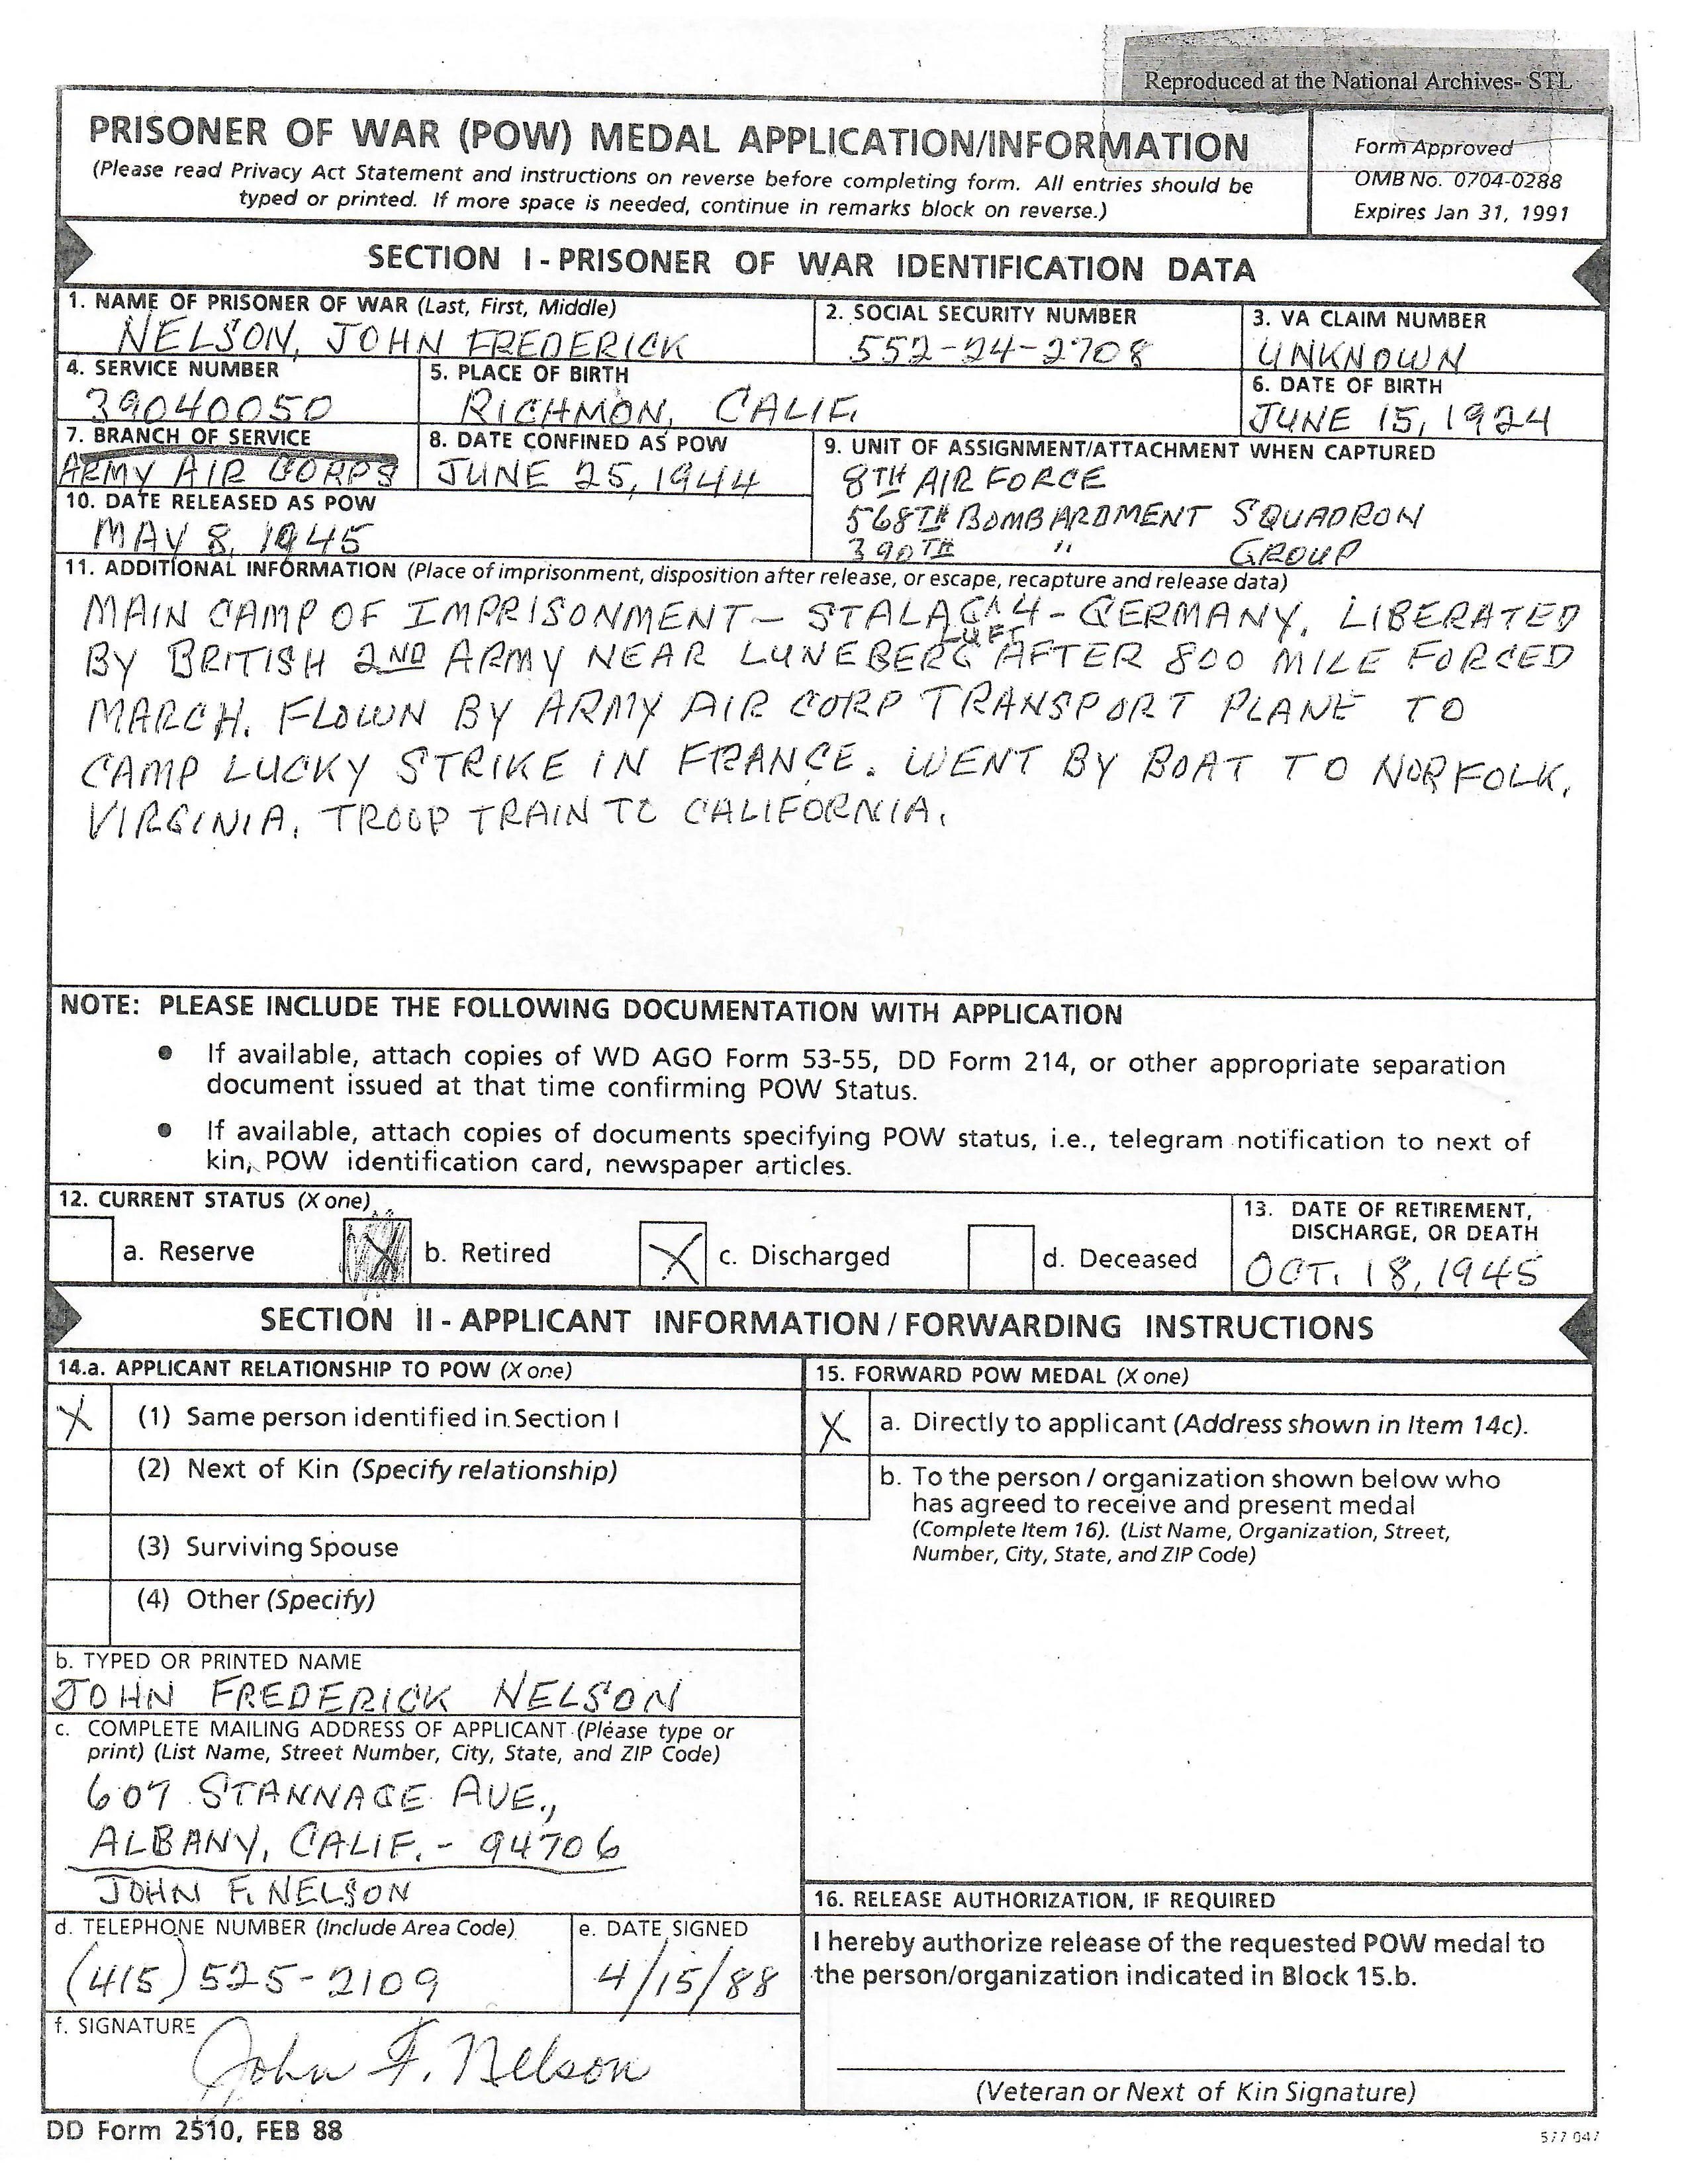 Reproduced at the National Archives- STL
PRISONER OF WAR (POW) MEDAL APPLICATION/INFORMATION
(Please read Privacy Act Statement and instructions on reverse before completing form. All entries should be
typed or printed. If more space is needed, continue in remarks block on reverse.)
Form Approved
OMB No. 0704-0288
Expires Jan 31, 1991
SECTION I - PRISONER OF WAR IDENTIFICATION DATA
1. NAME OF PRISONER OF WAR (Last, First, Middle)
NELSON, JOHN FREDERICK
2. SOCIAL SECURITY NUMBER
552-24-2708
3. VA CLAIM NUMBER
UNKNOWN
4. SERVICE NUMBER
39040050
5. PLACE OF BIRTH
RICHMON, CALIF.
6. DATE OF BIRTH
JUNE 15, 1924
7. BRANCH OF SERVICE
ARMY AIR CORPS
8. DATE CONFINED AS POW
JUNE 25, 1944
9. UNIT OF ASSIGNMENT/ATTACHMENT WHEN CAPTURED
8TH AIR FORCE
568TH BOMBARDMENT SQUADRON
390TH " GROUP
10. DATE RELEASED AS POW
MAY 8, 1945
11. ADDITIONAL INFORMATION (Place of imprisonment, disposition after release, or escape, recapture and release data)
MAIN CAMP OF IMPRISONMENT - STALAG ^ 4 - GERMANY. LIBERATED
LUFT
BY BRITISH 2ND ARMY NEAR LUNEBERG AFTER 800 MILE FORCED
MARCH. FLOWN BY ARMY AIR CORP TRANSPORT PLANE TO
CAMP LUCKY STRIKE IN FRANCE. WENT BY BOAT TO NORFOLK,
VIRGINIA. TROOP TRAIN TO CALIFORNIA.
NOTE: PLEASE INCLUDE THE FOLLOWING DOCUMENTATION WITH APPLICATION
• If available, attach copies of WD AGO Form 53-55, DD Form 214, or other appropriate separation
document issued at that time confirming POW Status.
• If available, attach copies of documents specifying POW status, i.e., telegram notification to next of
kin, POW identification card, newspaper articles.
12. CURRENT STATUS (X one)
a. Reserve
X b. Retired
X c. Discharged
d. Deceased
13. DATE OF RETIREMENT,
DISCHARGE, OR DEATH
OCT. 18, 1945
SECTION II - APPLICANT INFORMATION / FORWARDING INSTRUCTIONS
14.a. APPLICANT RELATIONSHIP TO POW (X one)
X (1) Same person identified in Section I
(2) Next of Kin (Specify relationship)
(3) Surviving Spouse
(4) Other (Specify)
b. TYPED OR PRINTED NAME
JOHN FREDERICK NELSON
c. COMPLETE MAILING ADDRESS OF APPLICANT (Please type or
print) (List Name, Street Number, City, State, and ZIP Code)
607 STANNAGE AVE.,
ALBANY, CALIF. - 94706
JOHN F. NELSON
d. TELEPHONE NUMBER (Include Area Code)
(415) 525-2109
e. DATE SIGNED
4/15/88
f. SIGNATURE
John F. Nelson
15. FORWARD POW MEDAL (X one)
X a. Directly to applicant (Address shown in Item 14c).
b. To the person / organization shown below who
has agreed to receive and present medal
(Complete Item 16). (List Name, Organization, Street,
Number, City, State, and ZIP Code)
16. RELEASE AUTHORIZATION, IF REQUIRED
I hereby authorize release of the requested POW medal to
the person/organization indicated in Block 15.b.
(Veteran or Next of Kin Signature)
DD Form 2510, FEB 88
577 047